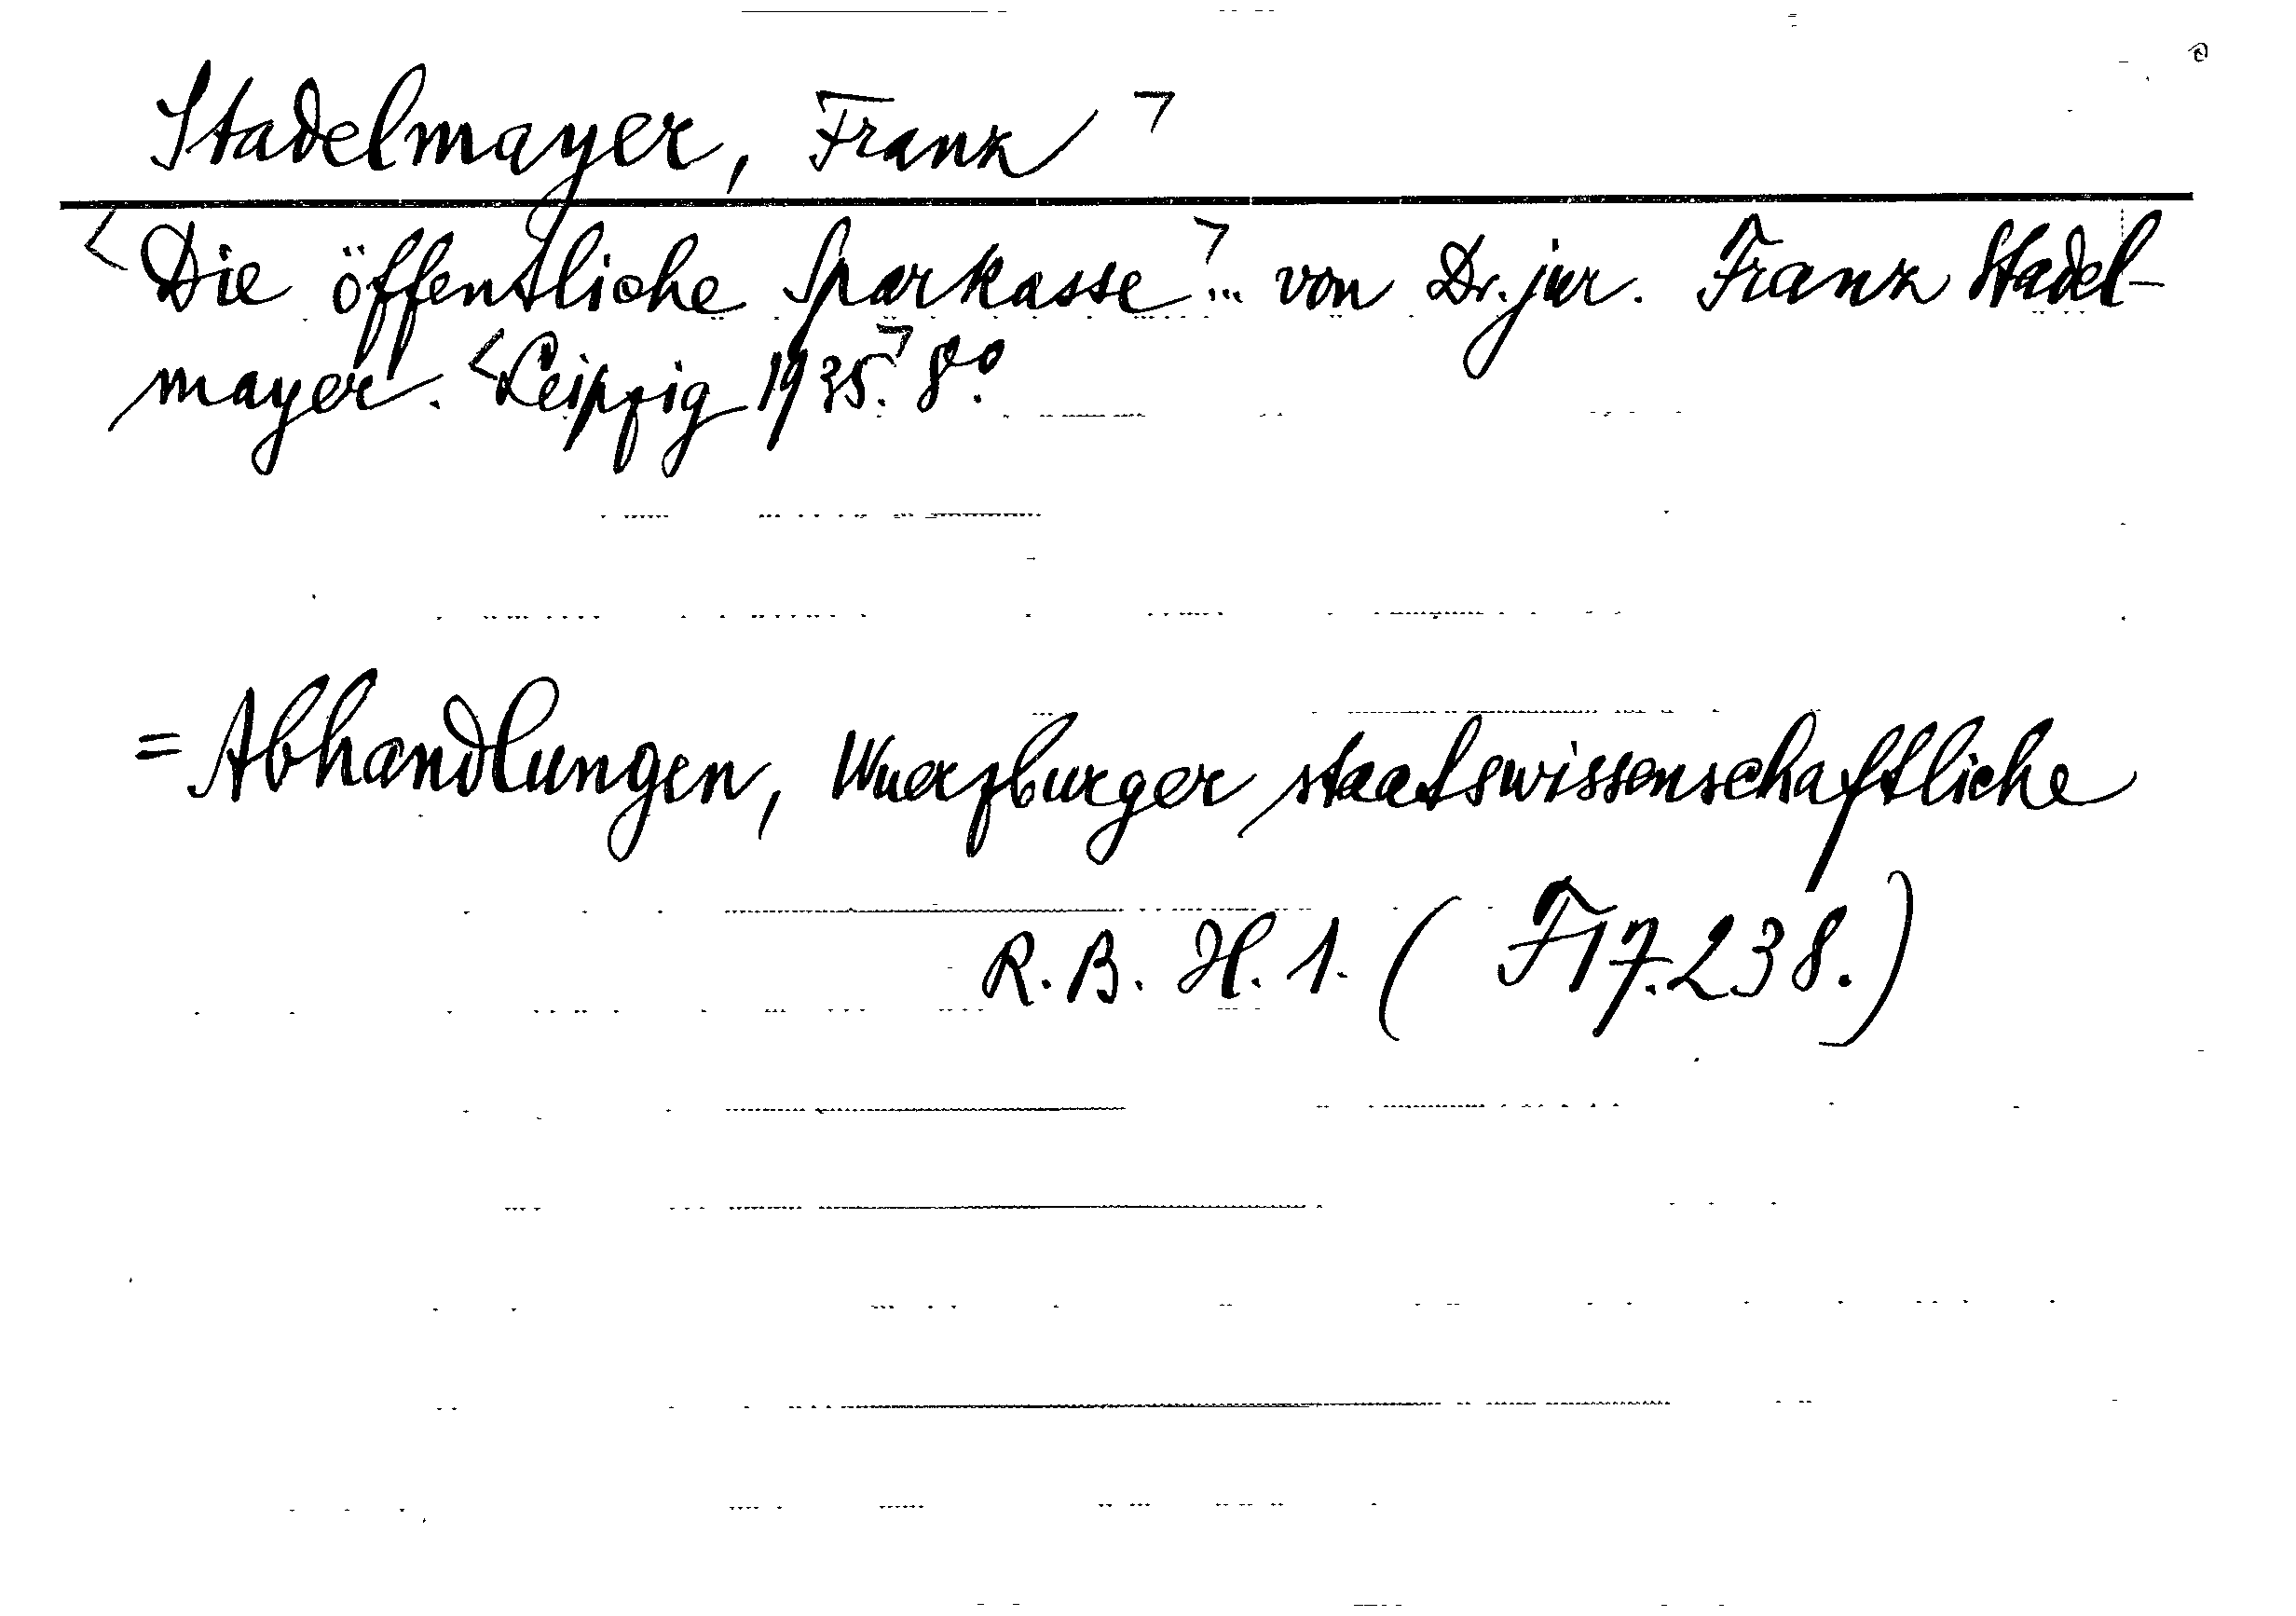 Stadelmayer, Franz ⌝
<Die öffentliche Sparkasse⌝... von Dr. jur. Franz Stadel-
mayer. <Leipzig 1935.⌝ 8º.
= Abhandlungen, Wuerzburger staatswissenschaftliche
R. B. H. 1. ( F17.238.)